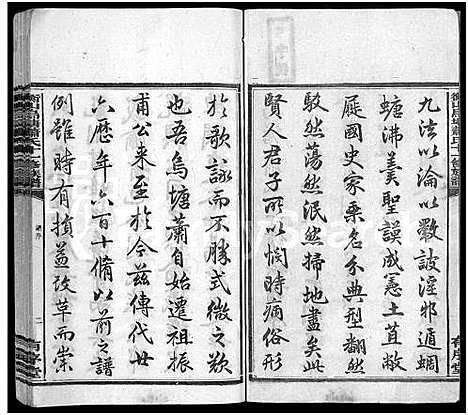 九法以淪以斁詖淫邪遁蜩
螗沸羹聖謨成憲土苴敝
屣國史家乘名分典型翻然
駮然蕩然泯然掃地盡矣此
賢人君子所以悯時痛俗形
於歌詠而不勝式微之歎
也吾烏塘蕭自始遷祖振
甫公来至於今茲傳代廿
六歷年六百十備以前之譜
例雖時有損益改草而崇
衡山烏塘蕭氏十修族譜
譜序
二
有序堂